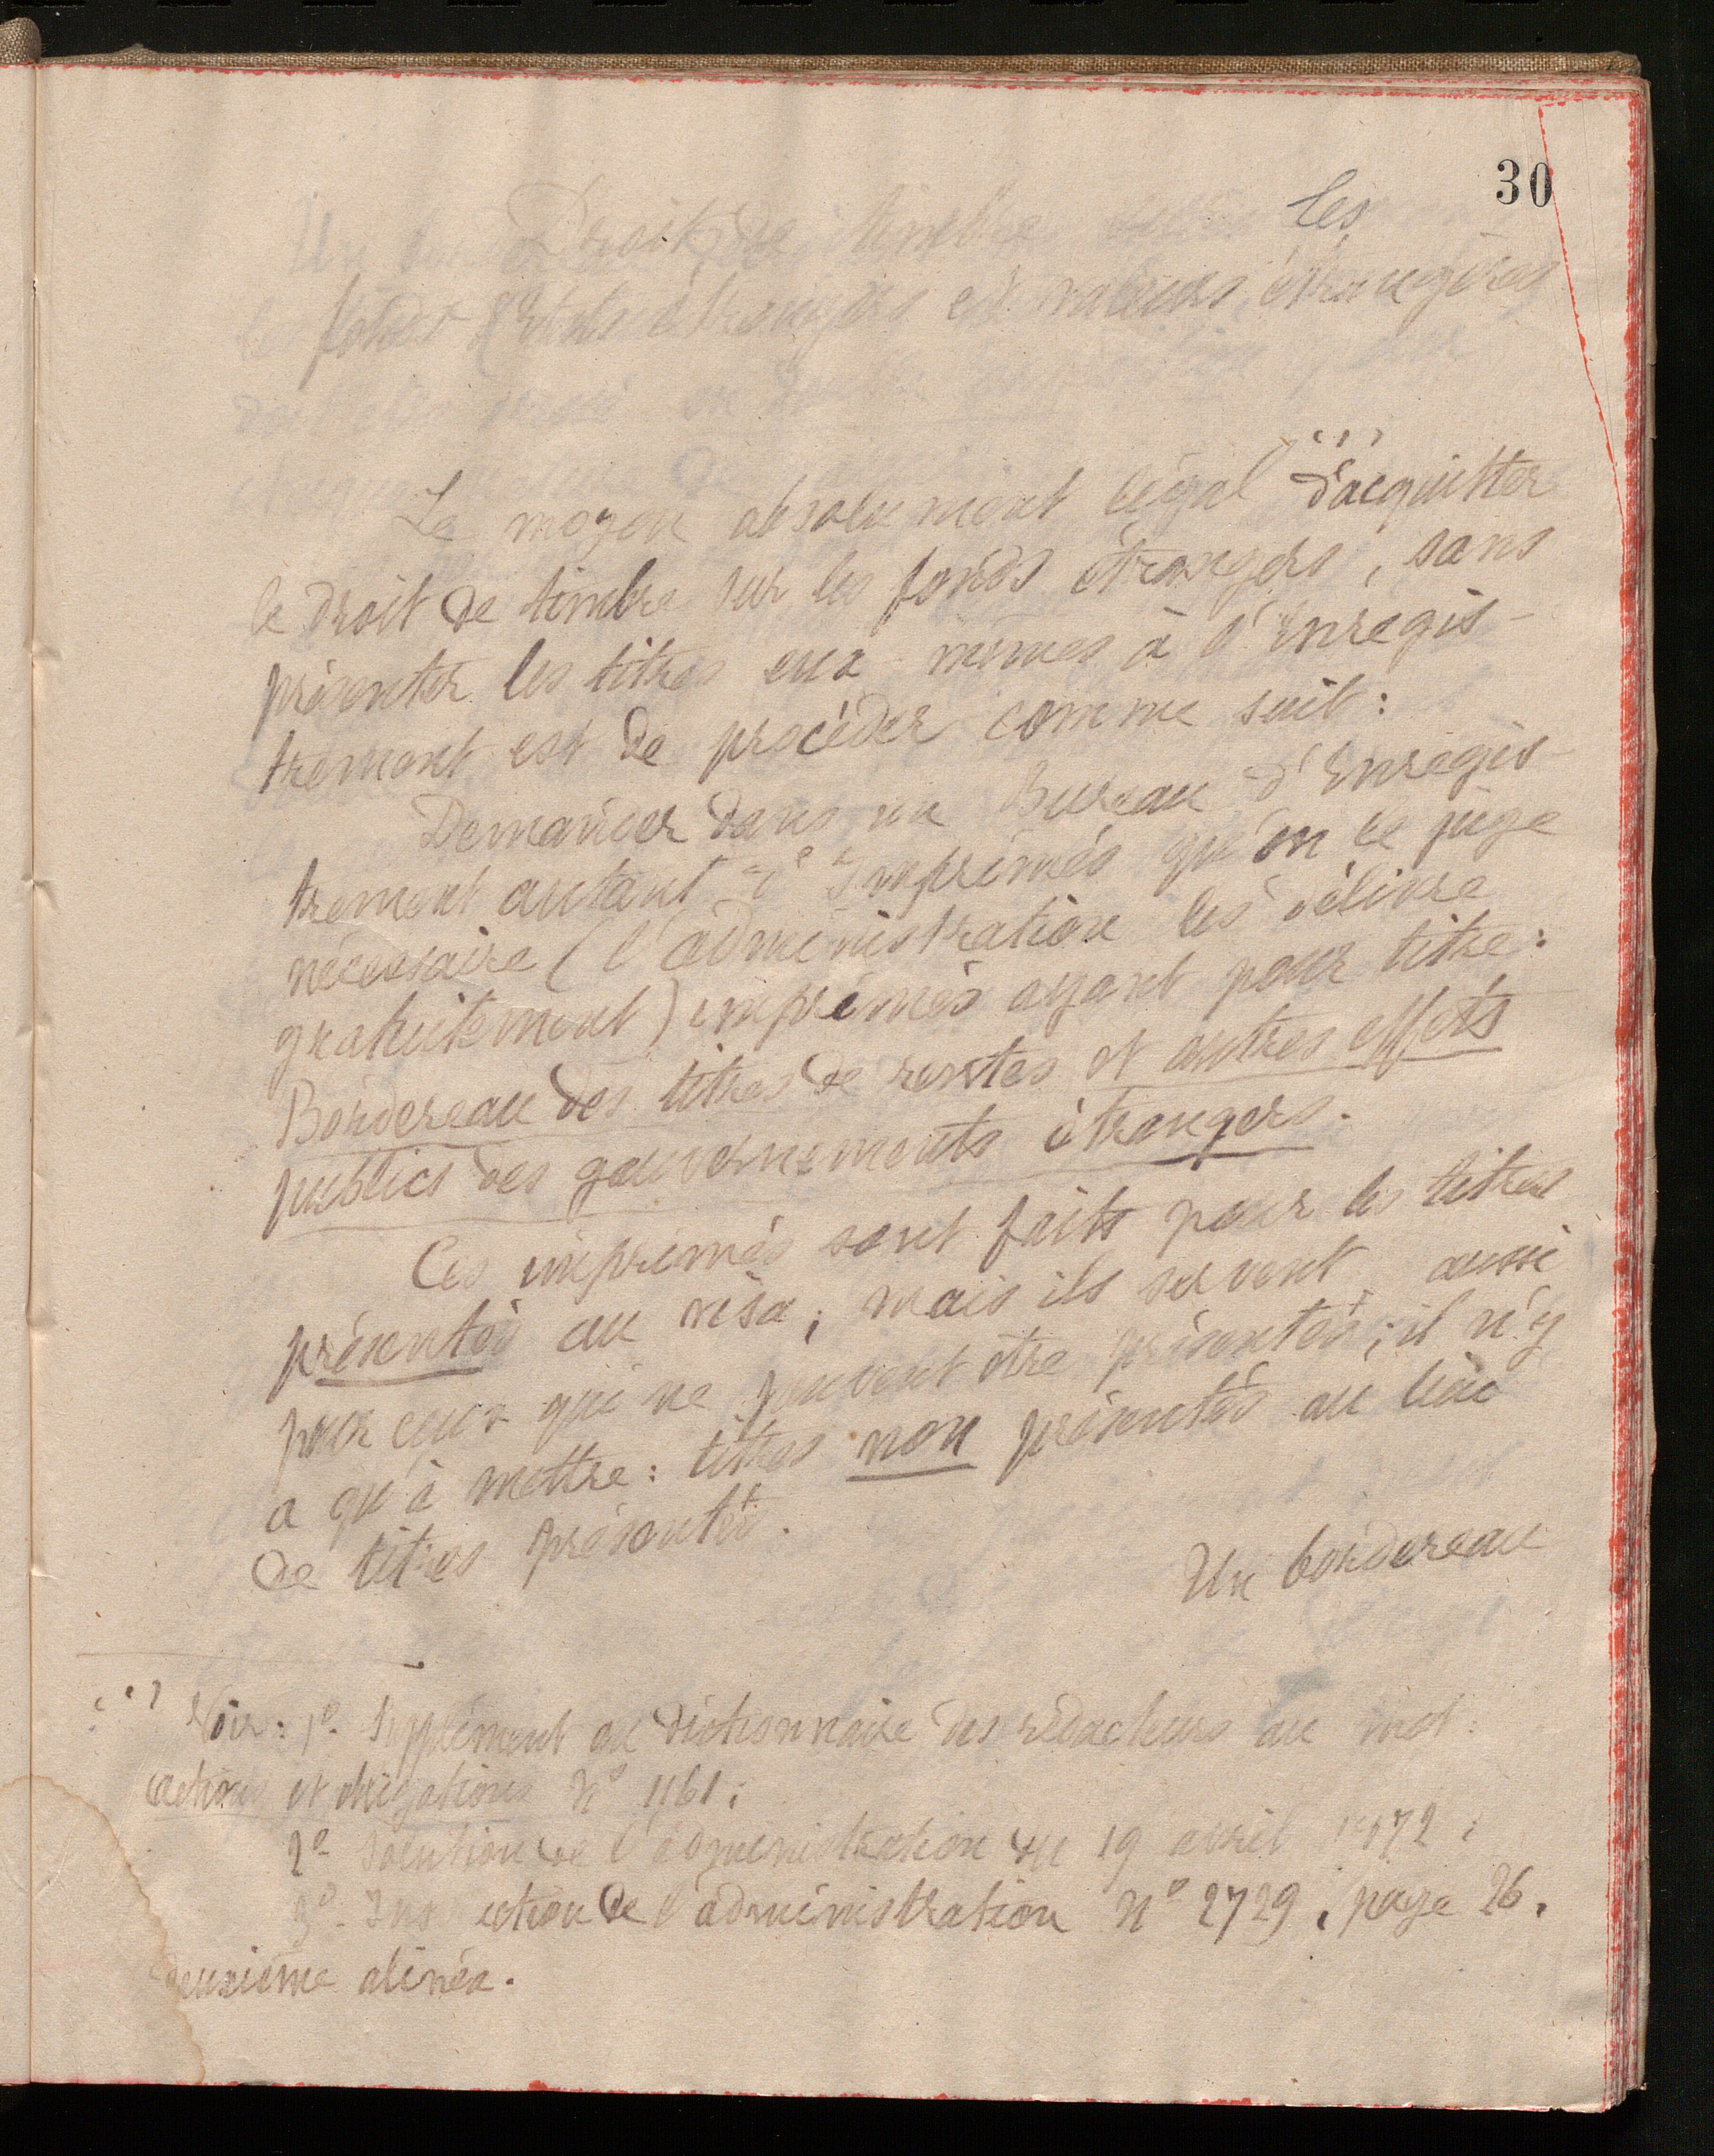 30
Droit de timbre sur les
fonds d'Etats étrangers et valeurs étrangères
(1)
Le moyen absolument légal d'acquitter
le droit de timbre sur les fonds étrangers, sans
présenter les titres eux-mêmes à l'Enregis-
trement est de procéder comme suit:
Demander dans un Bureau d'Enregis-
trement autant d'Imprimés qu'on le juge
nécessaire (l'administration les délivre
gratuitement) imprimés ayant pour titre:
Bordereau des titres de rentes et autres effets
publics des gouvernements étrangers.
Ces imprimés sont faits pour les titres
présentés au visa; mais ils servent aussi
pour ceux qui ne peuvent être présentés; il n'y
a qu'à mettre: titres non présentés au lieu
de titres présentés.
Un bordereau
(1) Voir: 1º- Supplément au dictionnaire des rédacteurs au mot:
actions et obligations Nº 1161;
2º- Solution de l'administration du 19 avril 1872;
3º- Ins ction de l'administration Nº 2729, page 26,
deuxième alinéa.